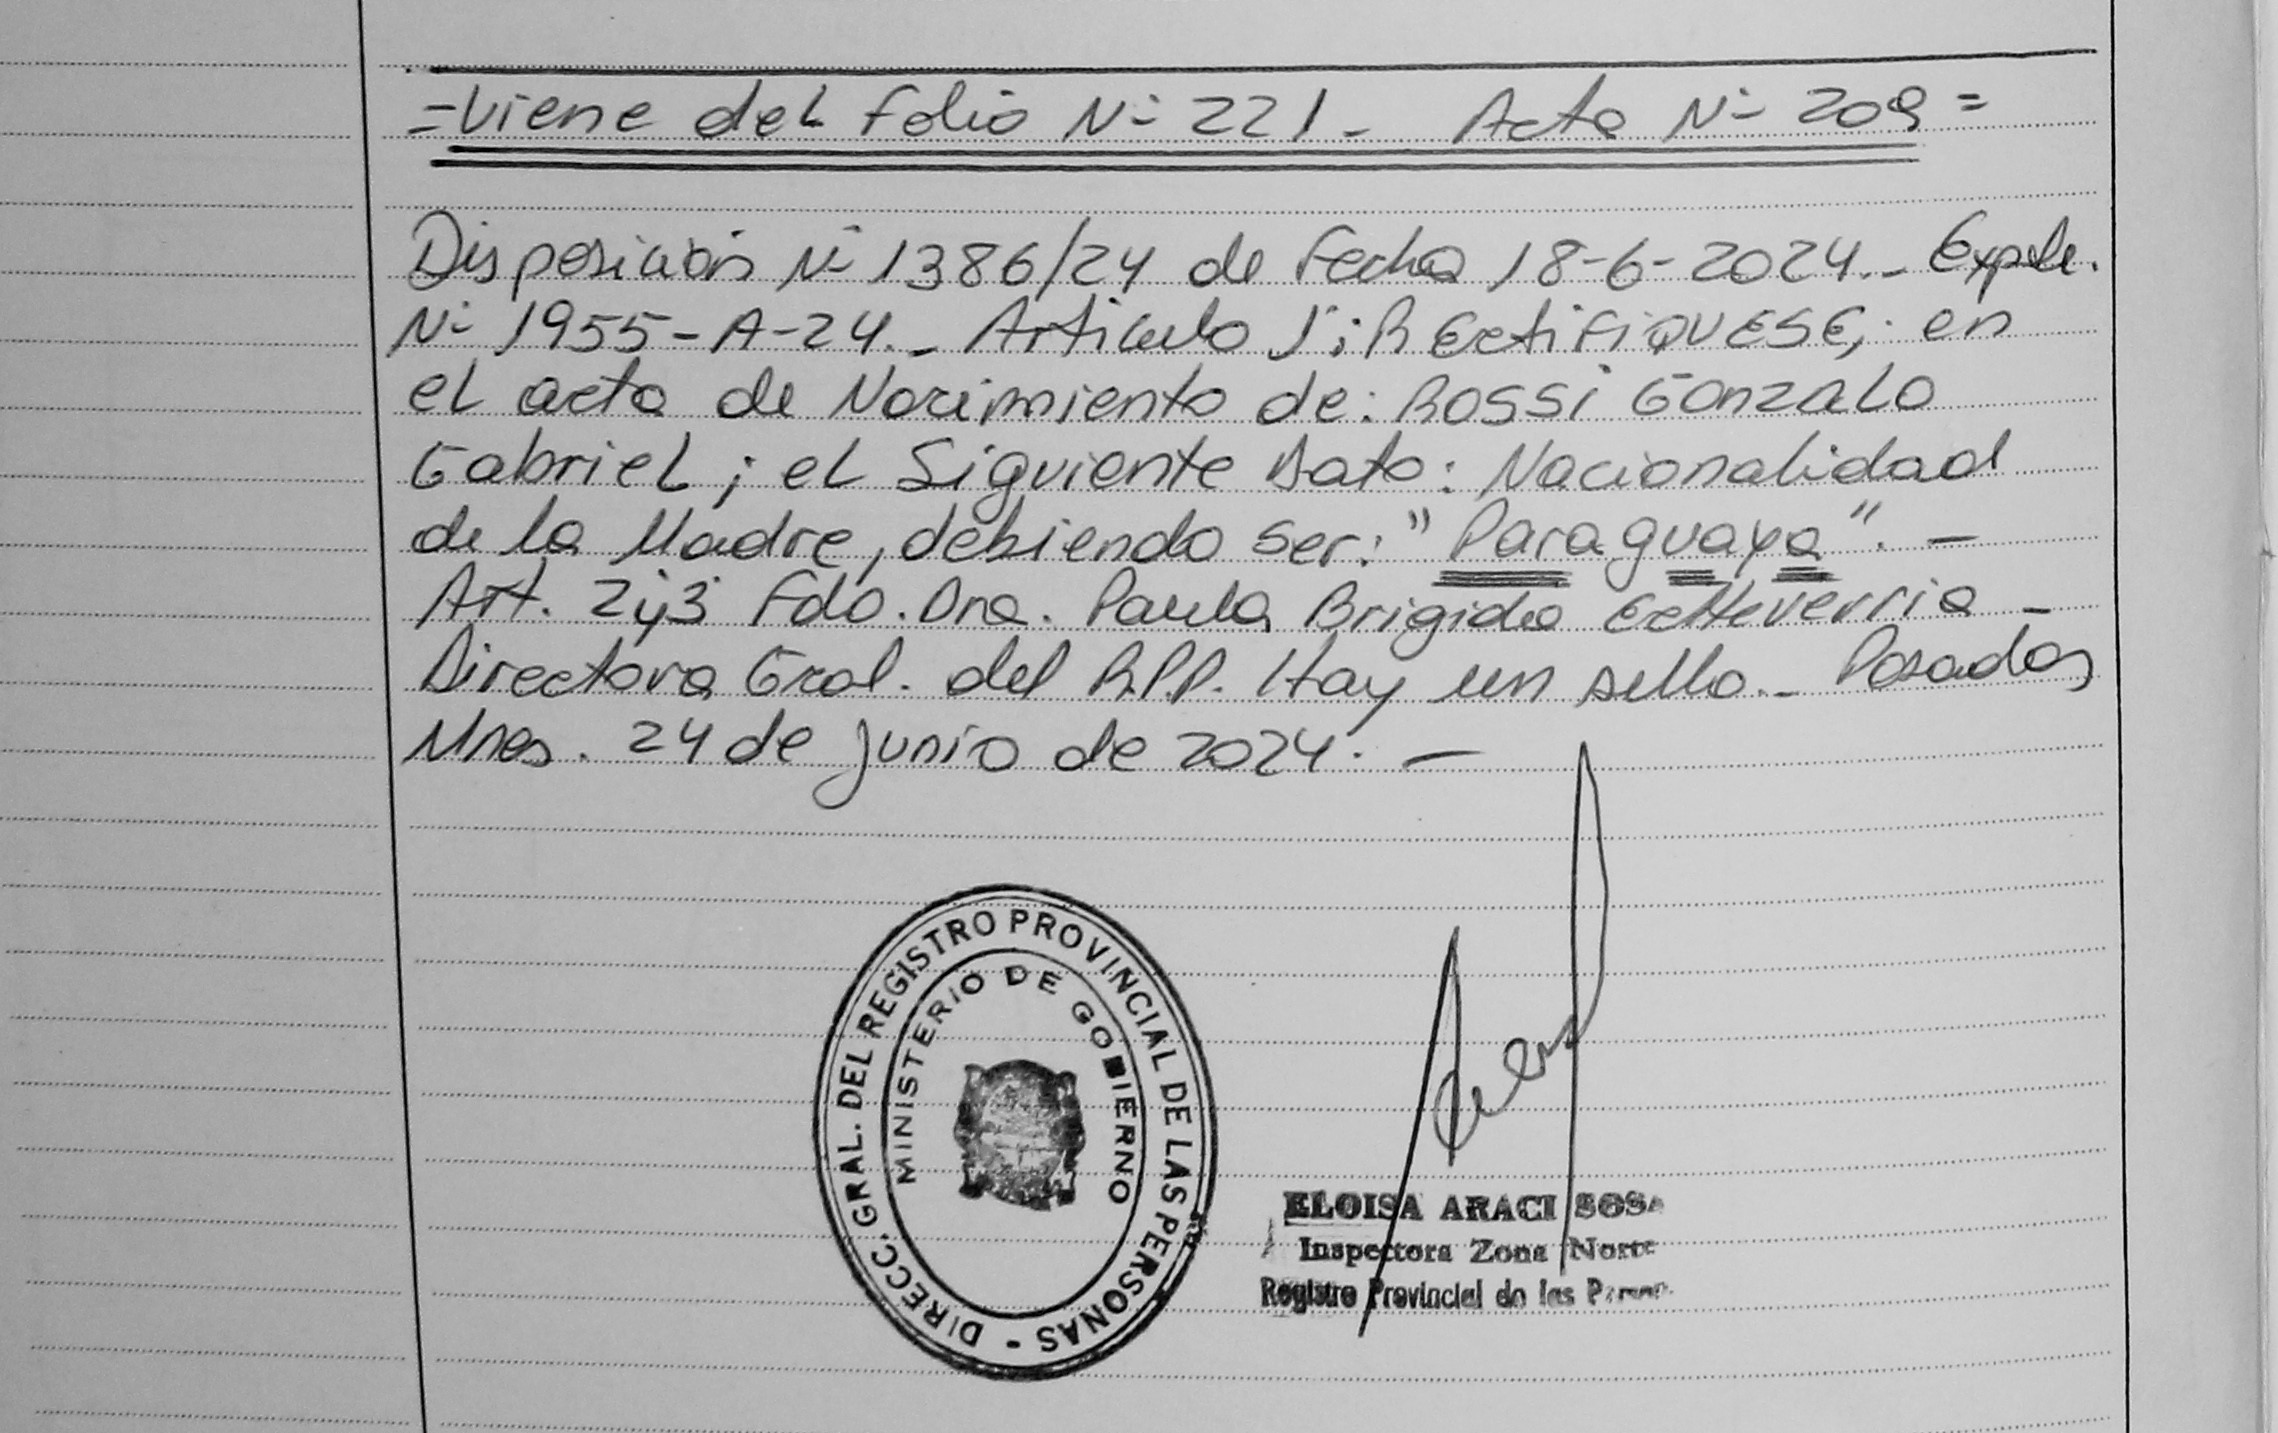 =Viene del folio Nº 221_ Acta Nº 209=
Disposición Nº 1386/24 de Fecha 18-6-2024._ Expte.
Nº 1955-A-24._ Articulo 1º: RECtiFiQUESE; en
el acta de Nacimiento de: ROSSi GONZALO
Gabriel; el Siguiente Dato: Nacionalidad
de la Madre, debiendo ser: "Paraguaya". —
Art. 2º y 3º Fdo. Dra. Paula Brigida Echeverria _
Directora Gral. del R.P.P. Hay un sello._ Posadas
Mnes. 24 de junio de 2024. —
DIRECC. GRAL. DEL REGISTRO PROVINCIAL DE LAS PERSONAS -
MINISTERIO DE GOBIERNO
ELOISA ARACI SOSA
Inspectora Zona Norte
Registro Provincial de las